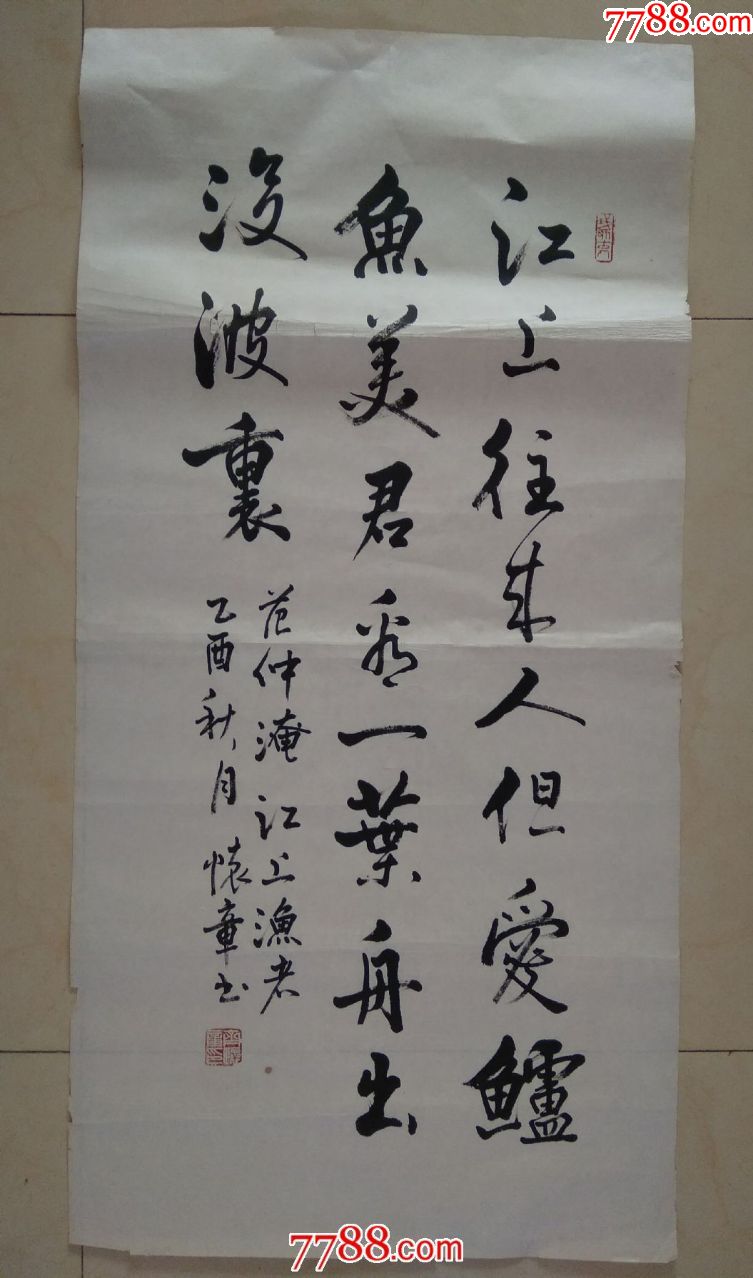 7788.com
江上往来人但愛鱸
魚美君看一葉舟出
没波裏
范仲淹江上漁者
乙酉秋月懷章书
7788.com